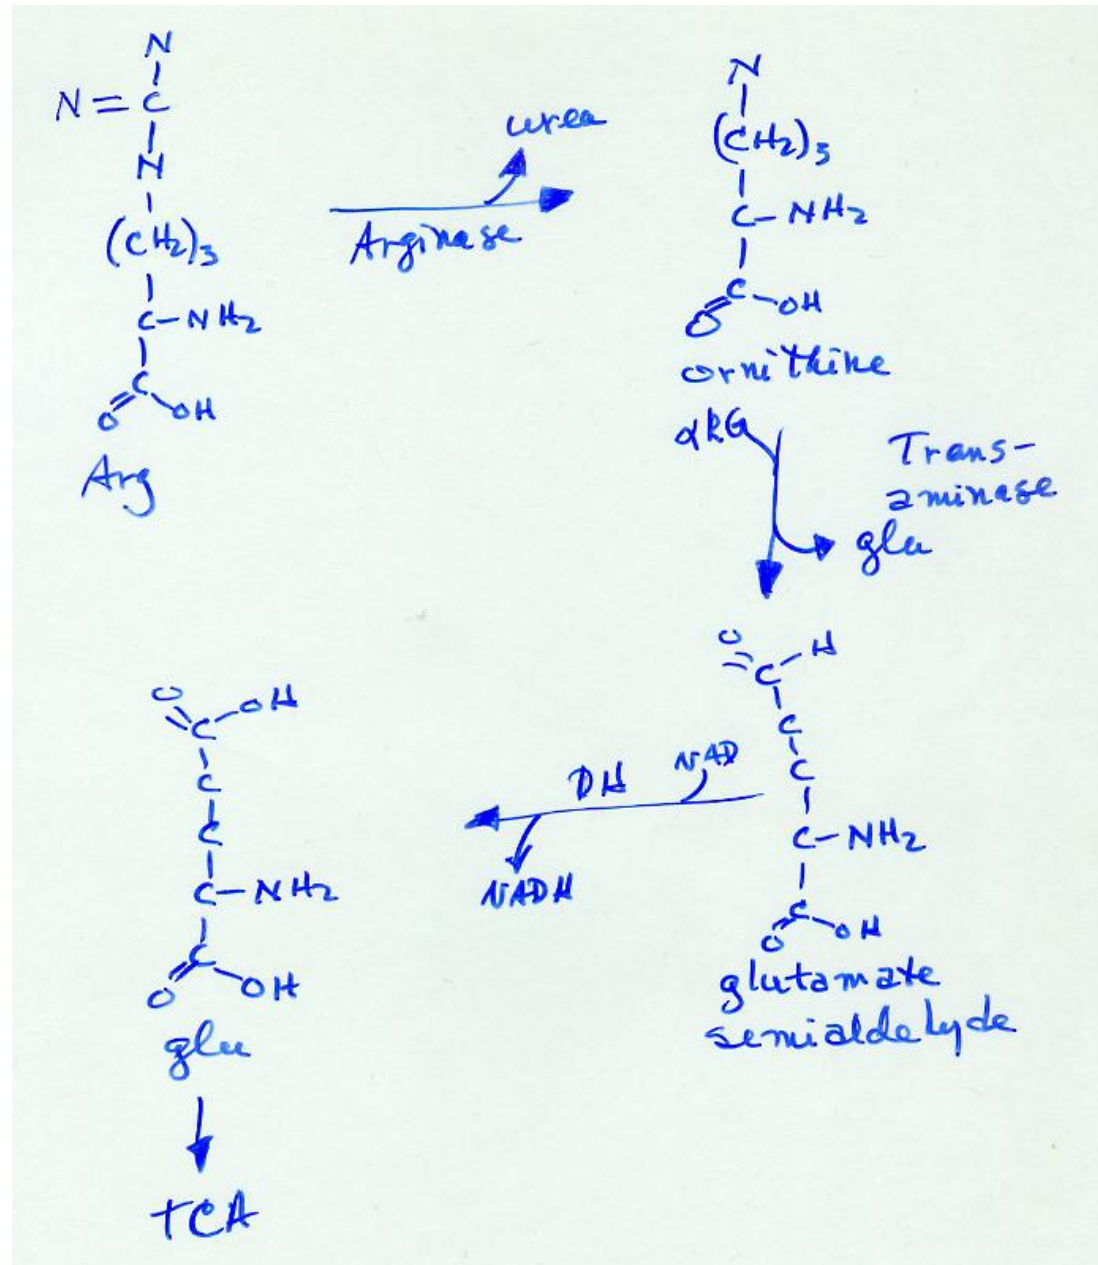 N
N=C
N
(CH₂)₃
C-NH₂
C
O OH
Arg
urea
Arginase
N
(CH₂)₃
C-NH₂
C
O OH
ornithine
αKG
Trans-
aminase
glu
O H
C
C
C
C-NH₂
C
O OH
glutamate
semialdehyde
NAD
DH
NADH
O OH
C
C
C
C-NH₂
C
O OH
glu
TCA